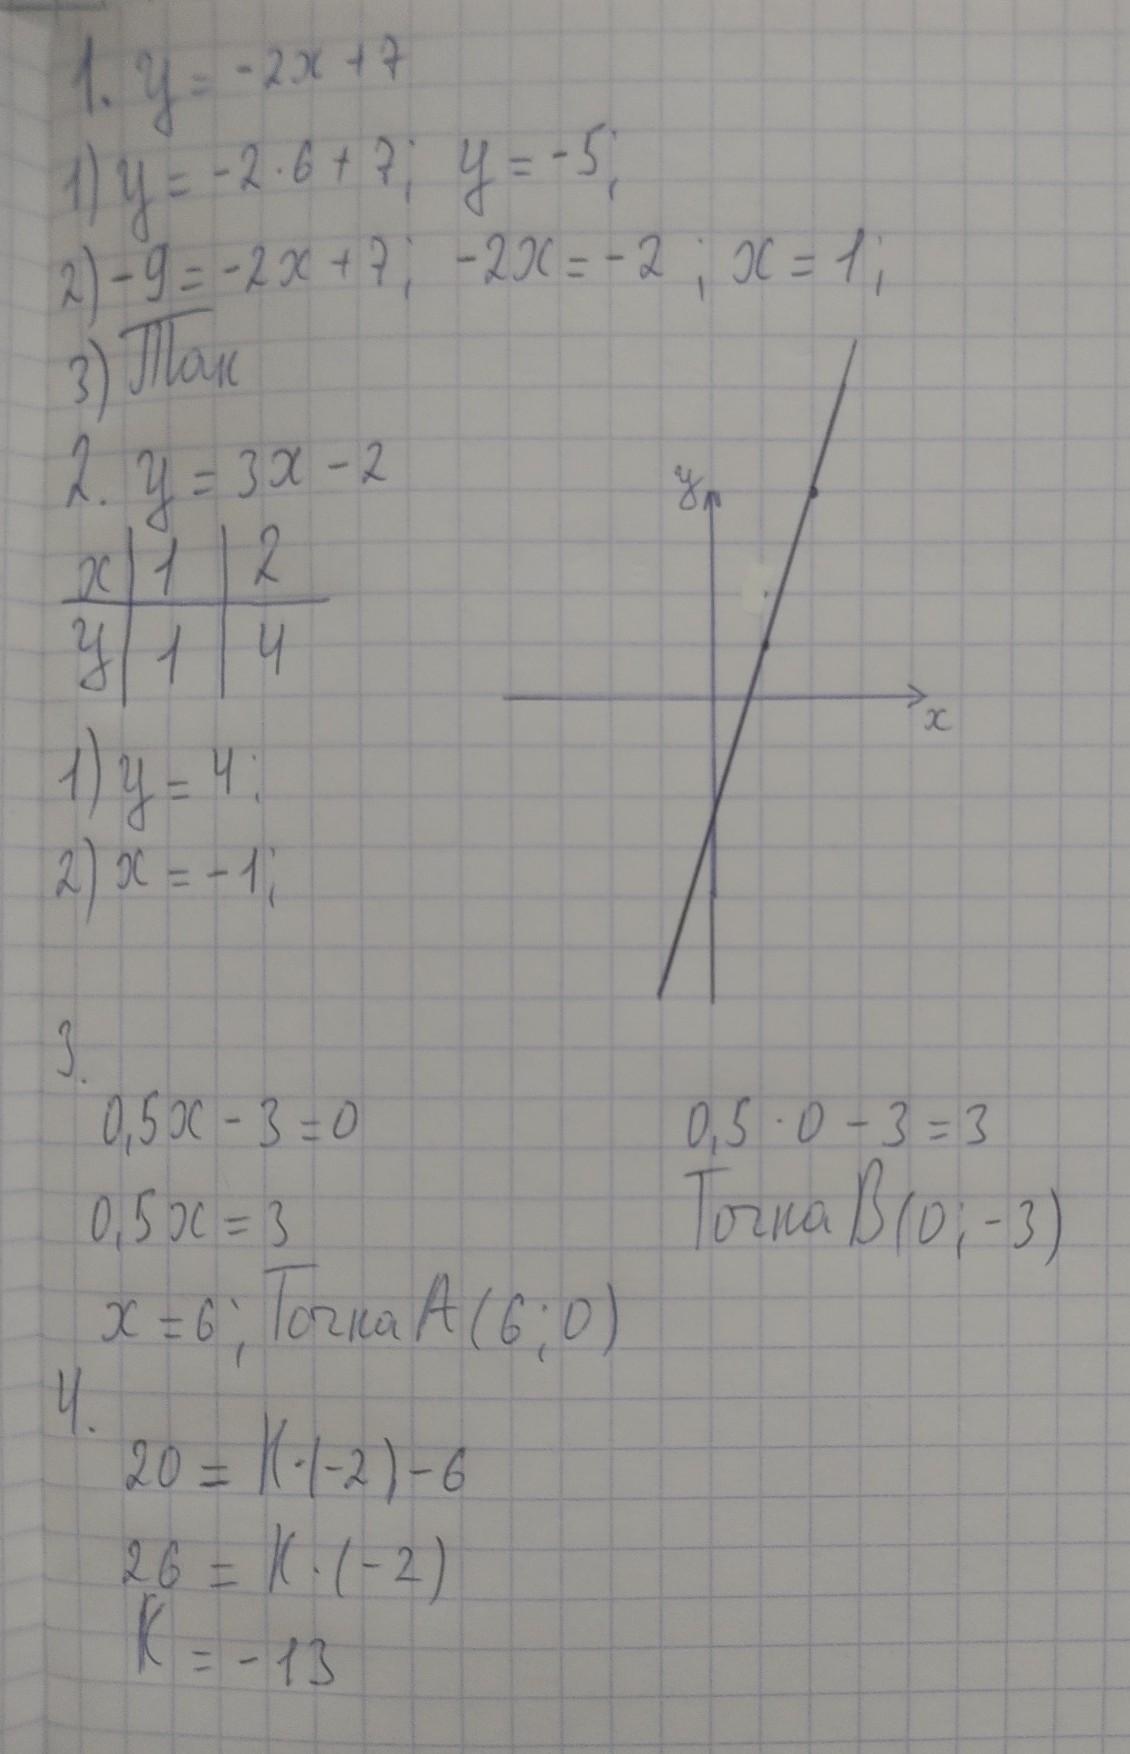 1. y = -2x + 7
1) y = -2·6 + 7; y = -5;
2) -9 = -2x + 7; -2x = -2; x = 1;
3) Так
2. y = 3x - 2
x | 1 | 2
y | 1 | 4
y
x
1) y = 4;
2) x = -1;
3.
0,5x - 3 = 0
0,5 · 0 - 3 = 3
0,5x = 3
Точка B(0; -3)
x = 6; Точка A(6; 0)
4.
20 = K·(-2) - 6
26 = K·(-2)
K = -13